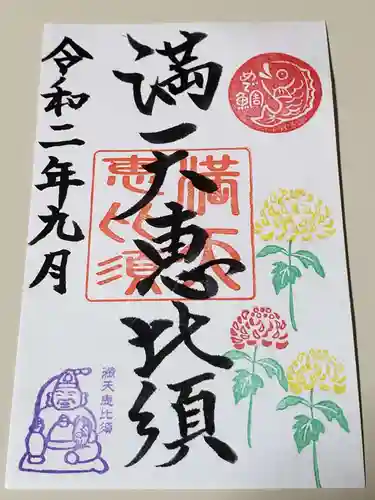 満天恵比須
令和二年九月
めで鯛
満天恵比須
満天恵比須